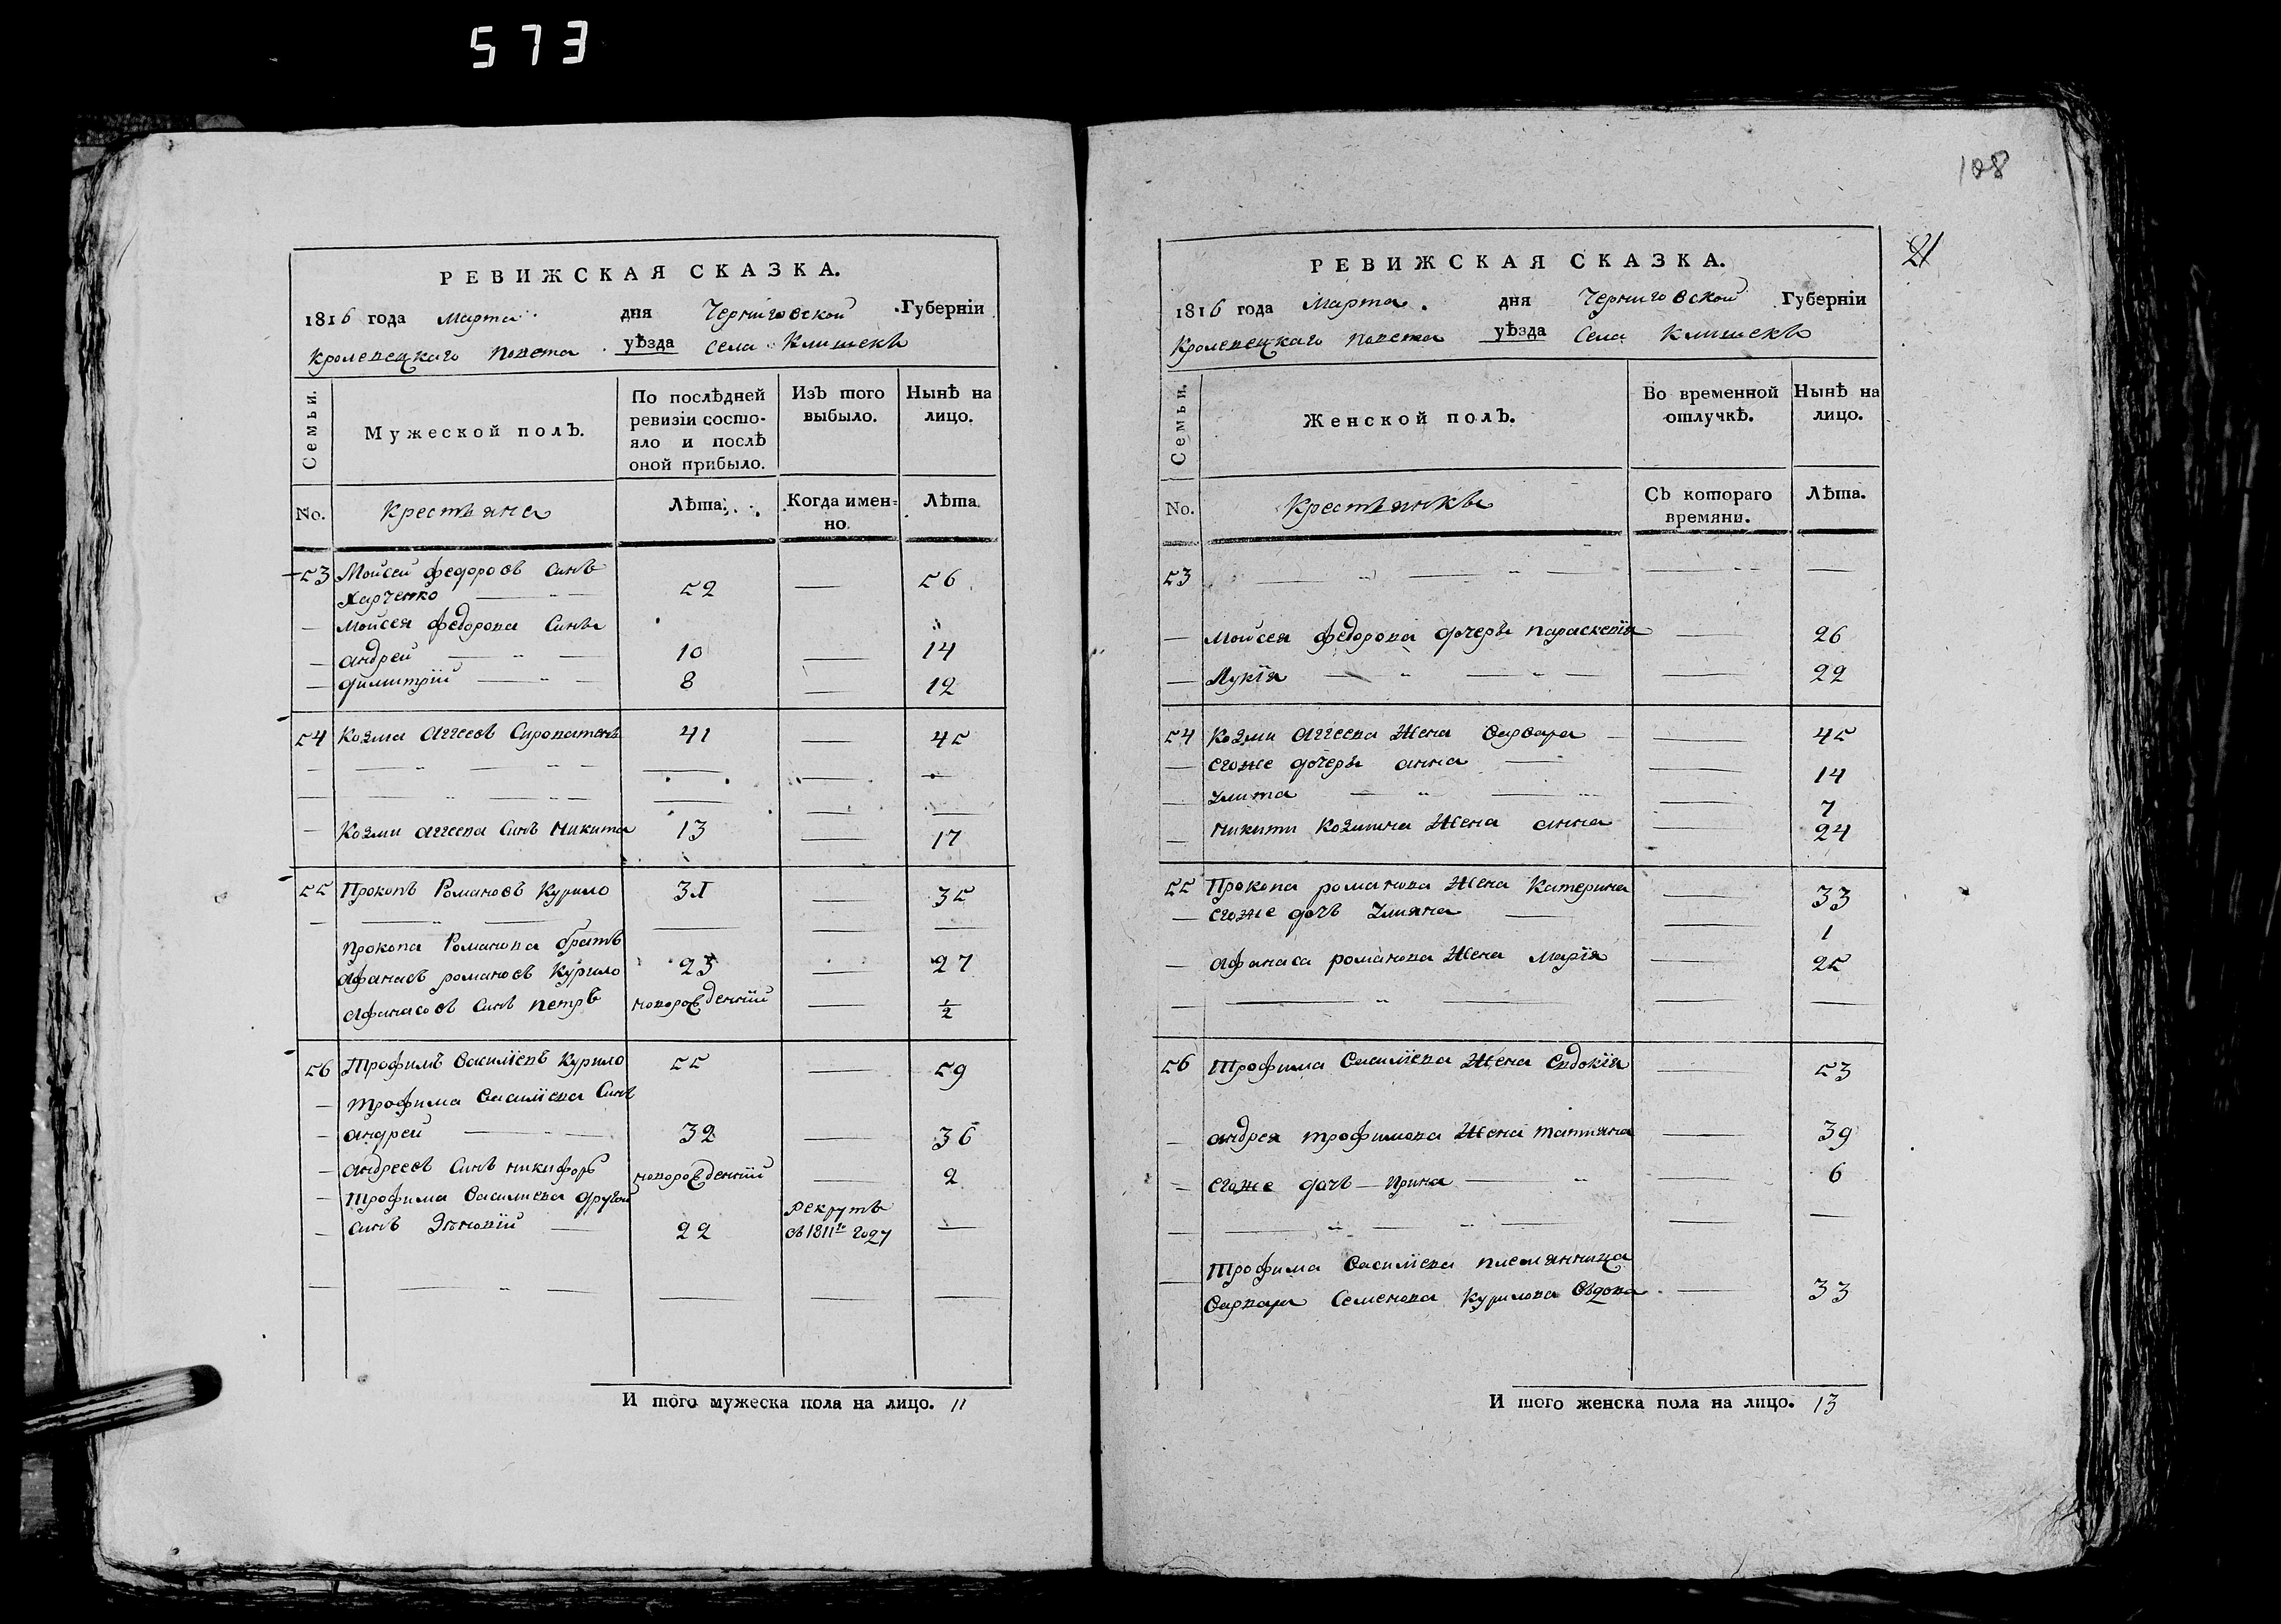 573
РЕВИЖСКАЯ СКАЗКА.
1816 года Марта дня Черниговской Губерніи
Кролевецкаго Повета уѣзда Села Клишекъ
Семьи.
Мужеской полъ.
По послѣдней ревизіи состояло и послѣ оной прибыло.
Изъ того выбыло.
Нынѣ на лицо.
No. Крестьяне Лѣта. Когда именно. Лѣта.
53 Мойсей Федоровъ Синъ
Харченко 52 — 56
— Мойсея Федорова Сины
— андрей 10 — 14
— димитрій 8 — 12
54 Козма Аггеевъ Сироватенъ 41 — 45
— Козми аггеева Синъ Никита 13 — 17
55 Прокопъ Романовъ Курило 31 — 35
Прокопа Романова братъ
Афанасъ романовъ Курило 23 — 27
Афанасовъ Синъ петръ новорожденній — 1/2
56 Трофимъ Василіевъ Курило 55 — 59
— Трофима Василіева Синъ
— андрей 32 — 36
— андреевъ Синъ никифоръ новорожденній — 2
— Трофима Василиева другой рекрутъ
— синъ Зѣновій 22 въ 1811м году —
И того мужеска пола на лицо. 11
108
21
РЕВИЖСКАЯ СКАЗКА.
1816 года Марта дня Черниговской Губерніи
Кролевецкаго Повета уѣзда Села Клишекъ
Семьи.
Женской полъ.
Во временной отлучкѣ.
Нынѣ на лицо.
No. Крестьянкы Съ котораго времяни. Лѣта.
53
— Мойсея Федорова дочеры параскевія — 26
— Лукія — 22
54 Козми Аггеева Жена Варвара — 45
— егоже дочеры анна — 14
— Улита — 7
— Никити Козмина Жена анна — 24
55 Прокопа романова Жена Катерина — 33
— егоже дочъ Улияна — 1
— Афанаса романова Жена Марія — 25
56 Трофима Василіева Жена Евдокія — 53
— андрея трофимова Жена татияна — 39
— егоже дочъ — Ирина — 6
Трофима Василіева племянница
— Варвара Семенова Курилова Вдова — 33
И того женска пола на лицо. 13